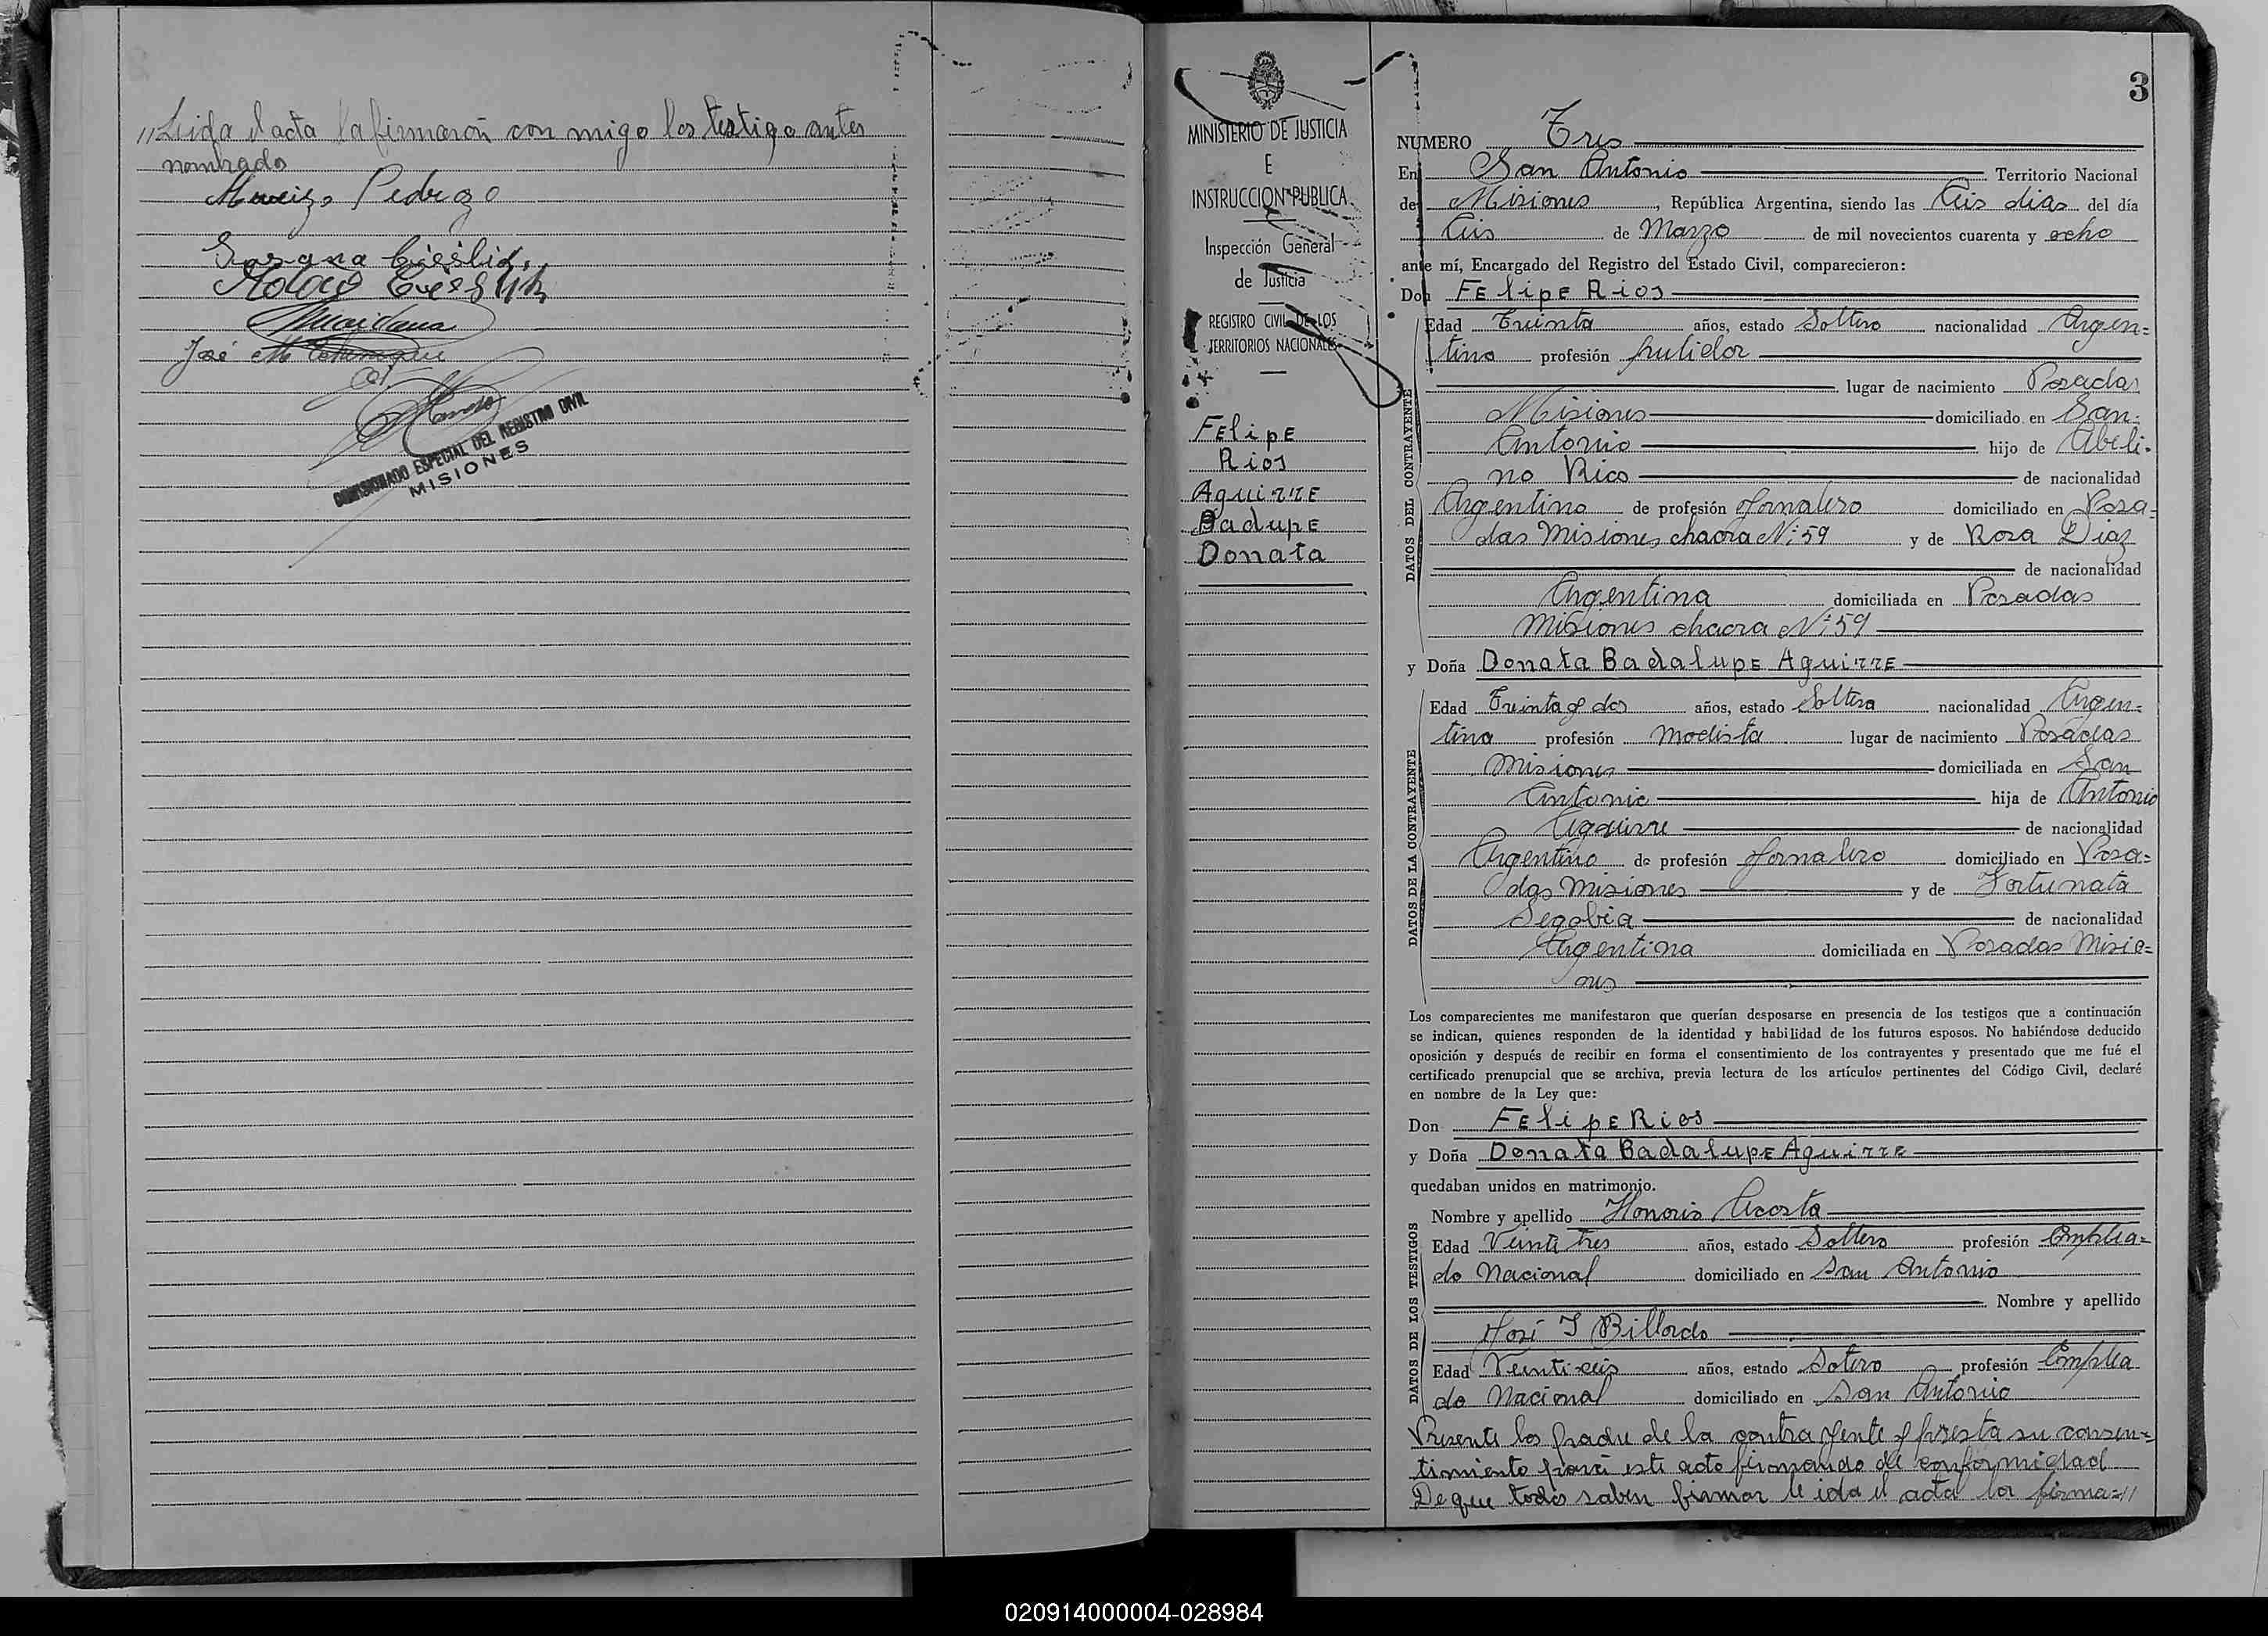 // Leida el acta la firmaron con migo los testigo antes
nombrado
Pedrozo
Susana
José M
COMISIONADO ESPECIAL DEL REGISTRO CIVIL
MISIONES
MINISTERIO DE JUSTICIA
E
INSTRUCCION PUBLICA
Inspección General
de Justicia
REGISTRO CIVIL DE LOS
TERRITORIOS NACIONALES
FElipE
Rios
AguirrE
BadupE
Donata
3
NUMERO Tres
En San Antonio Territorio Nacional
de Misiones, República Argentina, siendo las seis dias del día
seis de Marzo de mil novecientos cuarenta y ocho
ante mí, Encargado del Registro del Estado Civil, comparecieron:
Don FElipE Rios
DATOS DEL CONTRAYENTE
Edad Treinta años, estado Soltero nacionalidad Argen=
tino profesión
lugar de nacimiento Posadas
Misiones domiciliado en San=
Antonio hijo de Abeli=
no Rios de nacionalidad
Argentino de profesión Jornalero domiciliado en Posa=
das Misiones chacra Nº 59 y de Rosa Diaz
de nacionalidad
Argentina domiciliada en Posadas
Misiones chacra Nº 59
y Doña Donata BadalupE AguirrE
DATOS DE LA CONTRAYENTE
Edad Treinta y dos años, estado Soltera nacionalidad Argen=
tina profesión Modista lugar de nacimiento Posadas
Misiones domiciliada en San
Antonio hija de Antonio
Aguirre de nacionalidad
Argentino de profesión Jornalero domiciliado en Posa=
das Misiones y de Fortunata
Segobia de nacionalidad
Argentina domiciliada en Posadas Misio=
nes
Los comparecientes me manifestaron que querían desposarse en presencia de los testigos que a continuación
se indican, quienes responden de la identidad y habilidad de los futuros esposos. No habiéndose deducido
oposición y después de recibir en forma el consentimiento de los contrayentes y presentado que me fué el
certificado prenupcial que se archiva, previa lectura de los artículos pertinentes del Código Civil, declaré
en nombre de la Ley que:
Don FElipE Rios
y Doña Donata BadalupE AguirrE
quedaban unidos en matrimonio.
DATOS DE LOS TESTIGOS
Nombre y apellido Honorio Acosta
Edad Veinti tres años, estado Soltero profesión Emplea=
do Nacional domiciliado en San Antonio
Nombre y apellido
José I Billordo
Edad Veintiseis años, estado Sotero profesión Emplea
do Nacional domiciliado en San Antonio
Presente los padre de la contrayente y presta su consen=
timiento para este acto firmando de conformidad
De que todos saben firmar leida el acta la firma=//
020914000004-028984